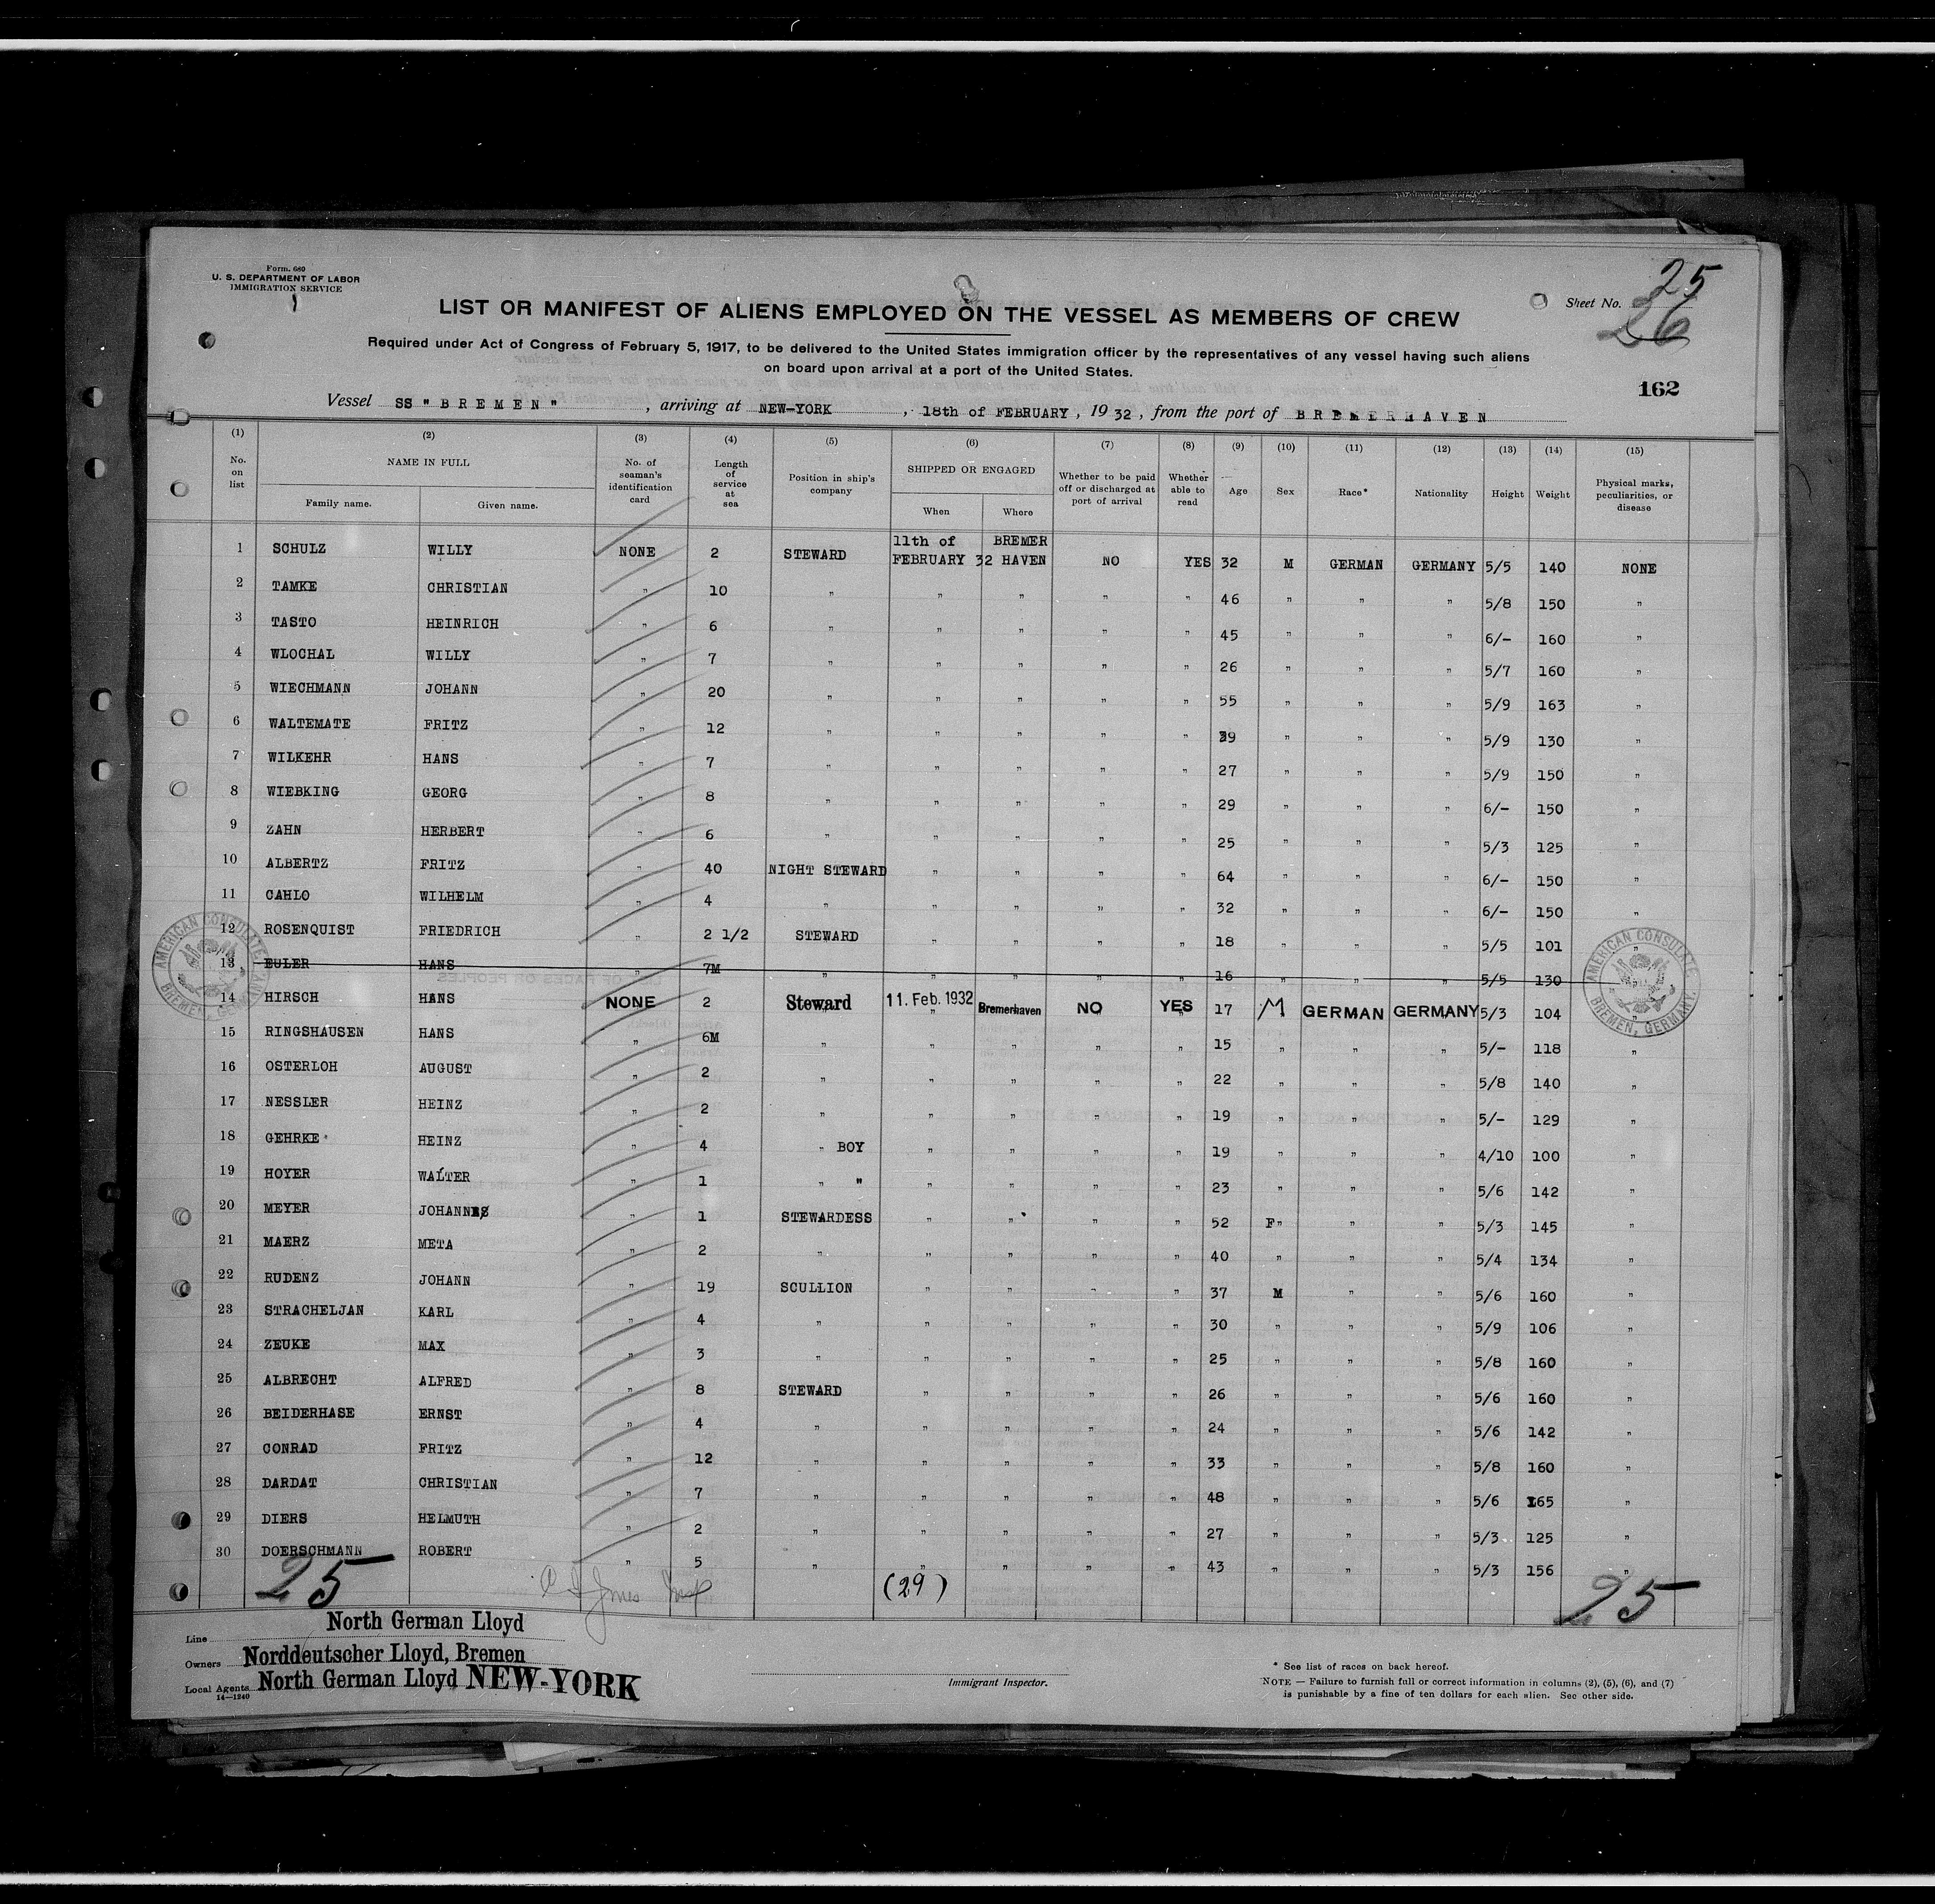 Form. 680
U. S. DEPARTMENT OF LABOR
IMMIGRATION SERVICE
LIST OR MANIFEST OF ALIENS EMPLOYED ON THE VESSEL AS MEMBERS OF CREW
Sheet No. 25
26
Required under Act of Congress of February 5, 1917, to be delivered to the United States immigration officer by the representatives of any vessel having such aliens
on board upon arrival at a port of the United States.
162
Vessel SS "BREMEN", arriving at NEW-YORK, 18th of FEBRUARY, 1932, from the port of BREMERHAVEN
(1) (2) (3) (4) (5) (6) (7) (8) (9) (10) (11) (12) (13) (14) (15)
No. on list NAME IN FULL Family name. Given name. No. of seaman's identification card Length of service at sea Position in ship's company SHIPPED OR ENGAGED When Where Whether to be paid off or discharged at port of arrival Whether able to read Age Sex Race* Nationality Height Weight Physical marks, peculiarities, or disease
1 SCHULZ WILLY NONE 2 STEWARD 11th of FEBRUARY 32 BREMER HAVEN NO YES 32 M GERMAN GERMANY 5/5 140 NONE
2 TAMKE CHRISTIAN " 10 " " " " " 46 " " " 5/8 150 "
3 TASTO HEINRICH " 6 " " " " " 45 " " " 6/- 160 "
4 WLOCHAL WILLY " 7 " " " " " 26 " " " 5/7 160 "
5 WIECHMANN JOHANN " 20 " " " " " 55 " " " 5/9 163 "
6 WALTEMATE FRITZ " 12 " " " " " 39 " " " 5/9 130 "
7 WILKEHR HANS " 7 " " " " " 27 " " " 5/9 150 "
8 WIEBKING GEORG " 8 " " " " " 29 " " " 6/- 150 "
9 ZAHN HERBERT " 6 " " " " " 25 " " " 5/3 125 "
10 ALBERTZ FRITZ " 40 NIGHT STEWARD " " " " 64 " " " 6/- 150 "
11 CAHLO WILHELM " 4 " " " " " 32 " " " 6/- 150 "
12 ROSENQUIST FRIEDRICH " 2 1/2 STEWARD " " " " 18 " " " 5/5 101 "
13 EULER HANS " 7M " " " " " 16 " " " 5/5 130 "
14 HIRSCH HANS NONE 2 Steward 11. Feb. 1932 Bremerhaven NO YES 17 M GERMAN GERMANY 5/3 104 "
15 RINGSHAUSEN HANS " 6M " " " " " 15 " " " 5/- 118 "
16 OSTERLOH AUGUST " 2 " " " " " 22 " " " 5/8 140 "
17 NESSLER HEINZ " 2 " " " " " 19 " " " 5/- 129 "
18 GEHRKE HEINZ " 4 " BOY " " " " 19 " " " 4/10 100 "
19 HOYER WALTER " 1 " " " " " " 23 " " " 5/6 142 "
20 MEYER JOHANNE " 1 STEWARDESS " " " " 52 F" " " 5/3 145 "
21 MAERZ META " 2 " " " " " 40 " " " 5/4 134 "
22 RUDENZ JOHANN " 19 SCULLION " " " " 37 M " " 5/6 160 "
23 STRACHELJAN KARL " 4 " " " " " 30 " " " 5/9 106 "
24 ZEUKE MAX " 3 " " " " " 25 " " " 5/8 160 "
25 ALBRECHT ALFRED " 8 STEWARD " " " " 26 " " " 5/6 160 "
26 BEIDERHASE ERNST " 4 " " " " " 24 " " " 5/6 142 "
27 CONRAD FRITZ " 12 " " " " " 33 " " " 5/8 160 "
28 DARDAT CHRISTIAN " 7 " " " " " 48 " " " 5/6 165 "
29 DIERS HELMUTH " 2 " " " " " 27 " " " 5/3 125 "
30 DOERSCHMANN ROBERT " 5 " " " " " 43 " " " 5/3 156 "
AMERICAN CONSULATE BREMEN, GERMANY.
AMERICAN CONSULATE BREMEN, GERMANY.
25 (29) 25
Line North German Lloyd
Owners Norddeutscher Lloyd, Bremen
Local Agents North German Lloyd NEW-YORK
14—1240
Immigrant Inspector.
* See list of races on back hereof.
NOTE — Failure to furnish full or correct information in columns (2), (5), (6), and (7)
is punishable by a fine of ten dollars for each alien. See other side.